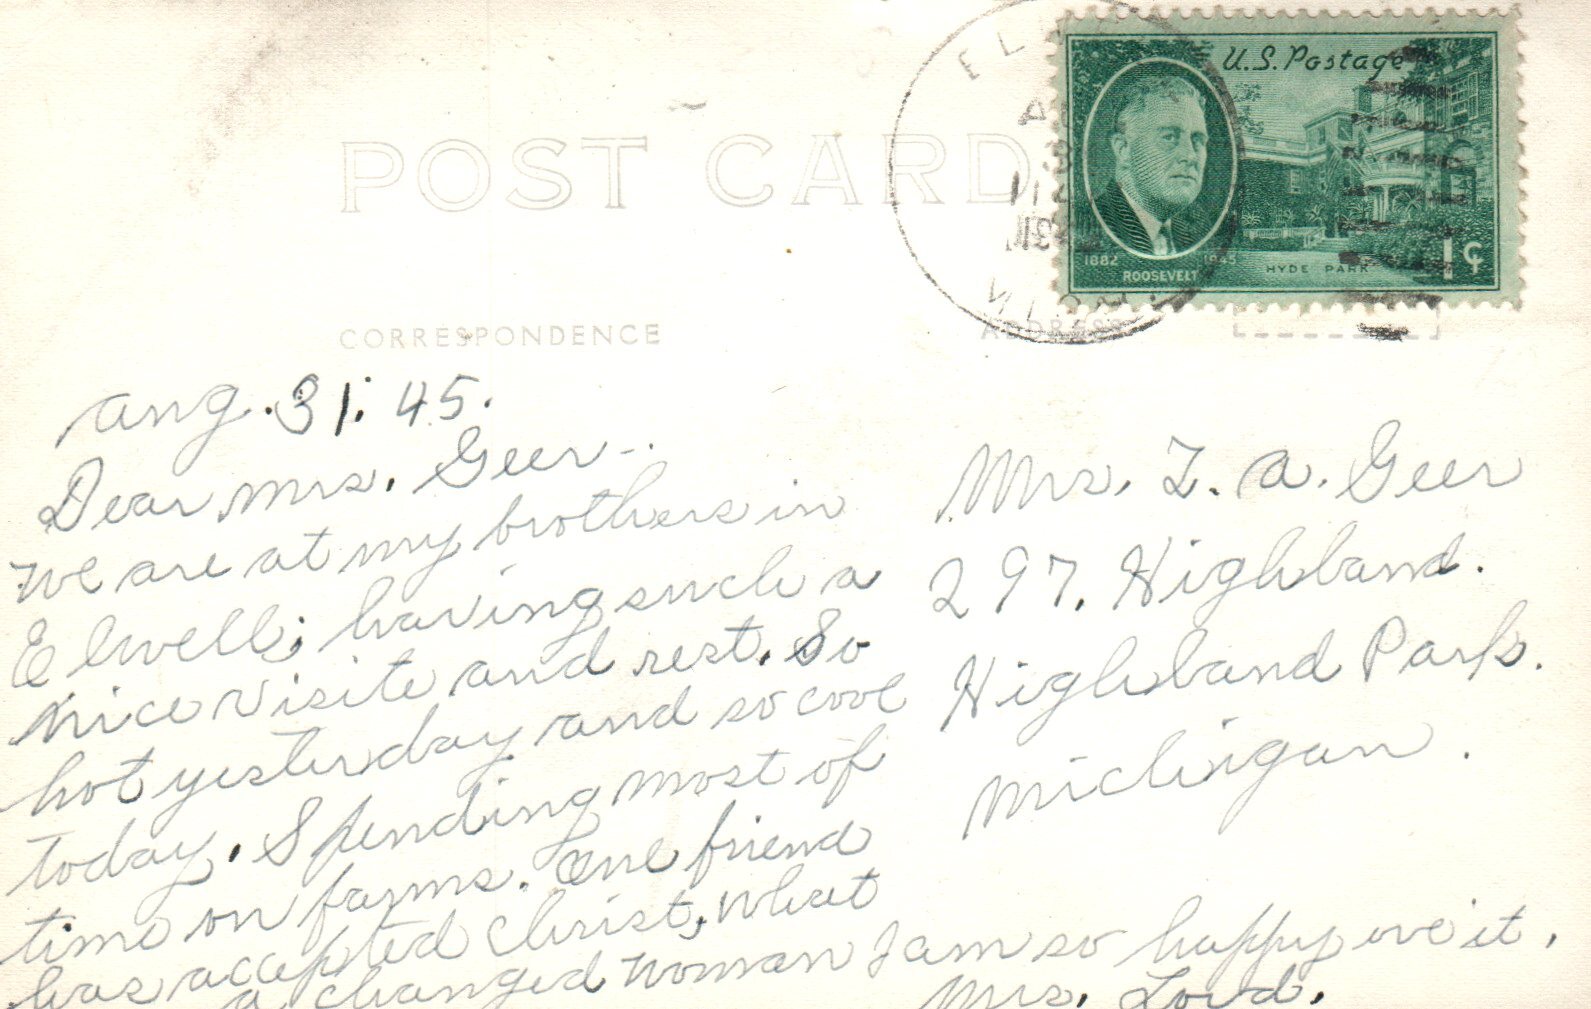 POST CARD
CORRESPONDENCE
ADDRESS
U.S. Postage
1882 1945
ROOSEVELT
HYDE PARK
1¢
MICH.
Aug. 31. 45.
Dear Mrs. Geer-.
we are at my brothers in
Elwell; having such a
nice visite and rest. So
hot yesterday and so cool
today. Spending most of
time on farms. One friend
has accepted Christ, what
a changed woman I am so happy ove it.
Mrs. Lord.
Mrs. L. A. Geer
297. Highland.
Highland Park.
Michigan.